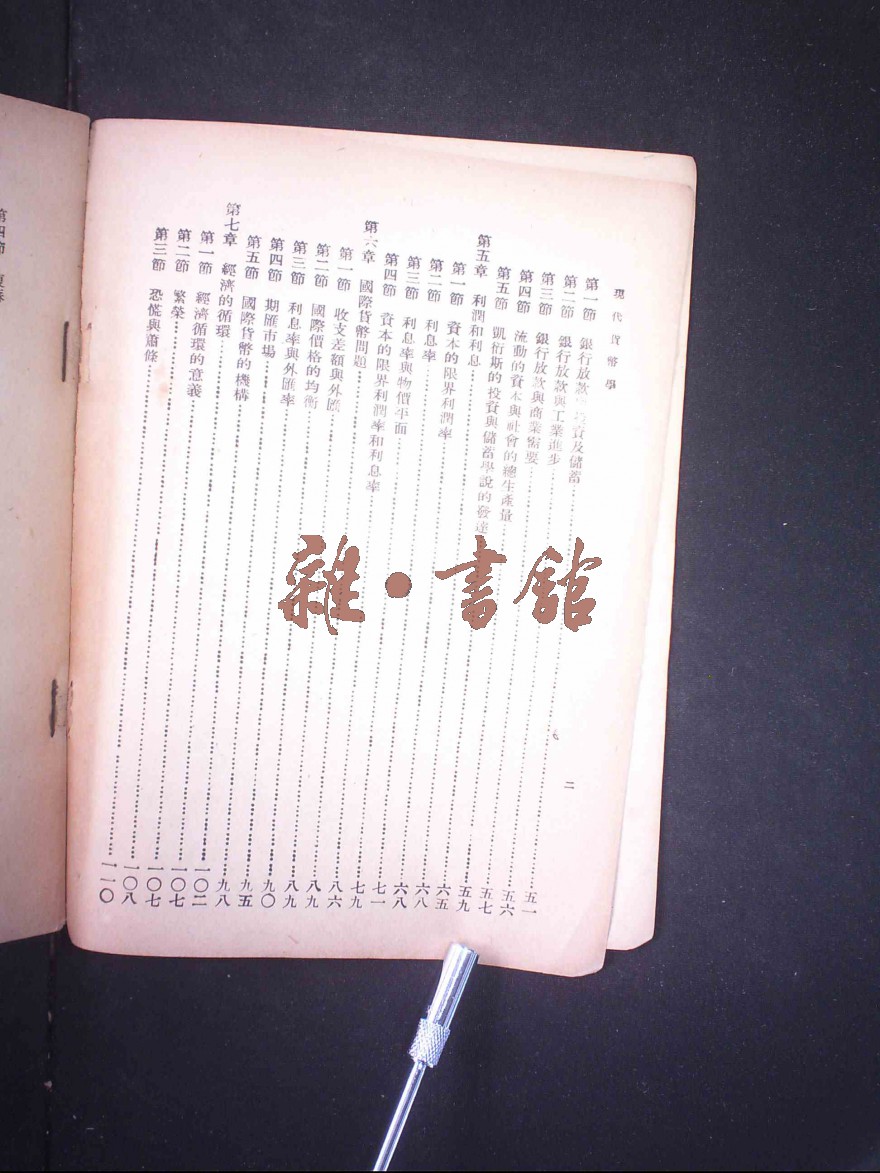 現代貨幣學
二
第一節 銀行放款 投資及儲蓄 五一
第二節 銀行放款與工業進步 五六
第三節 銀行放款與商業需要 五七
第四節 流動的資本與社會的總生產量 五九
第五節 凱衍斯的投資與儲蓄學說的發達 六五
第五章 利潤和利息 六八
第一節 資本的限界利潤率 六八
第二節 利息率 七一
第三節 利息率與物價平面 七九
第四節 資本的限界利潤率和利息率 八六
第六章 國際貨幣問題 八九
第一節 收支差額與外匯 八九
第二節 國際價格的均衡 九〇
第三節 利息率與外匯率 九五
第四節 期匯市場 九八
第五節 國際貨幣的機構 一〇二
第七章 經濟的循環 一〇七
第一節 經濟循環的意義 一〇七
第二節 繁榮 一〇八
第三節 恐慌與蕭條 一一〇
第四節
雜·書館